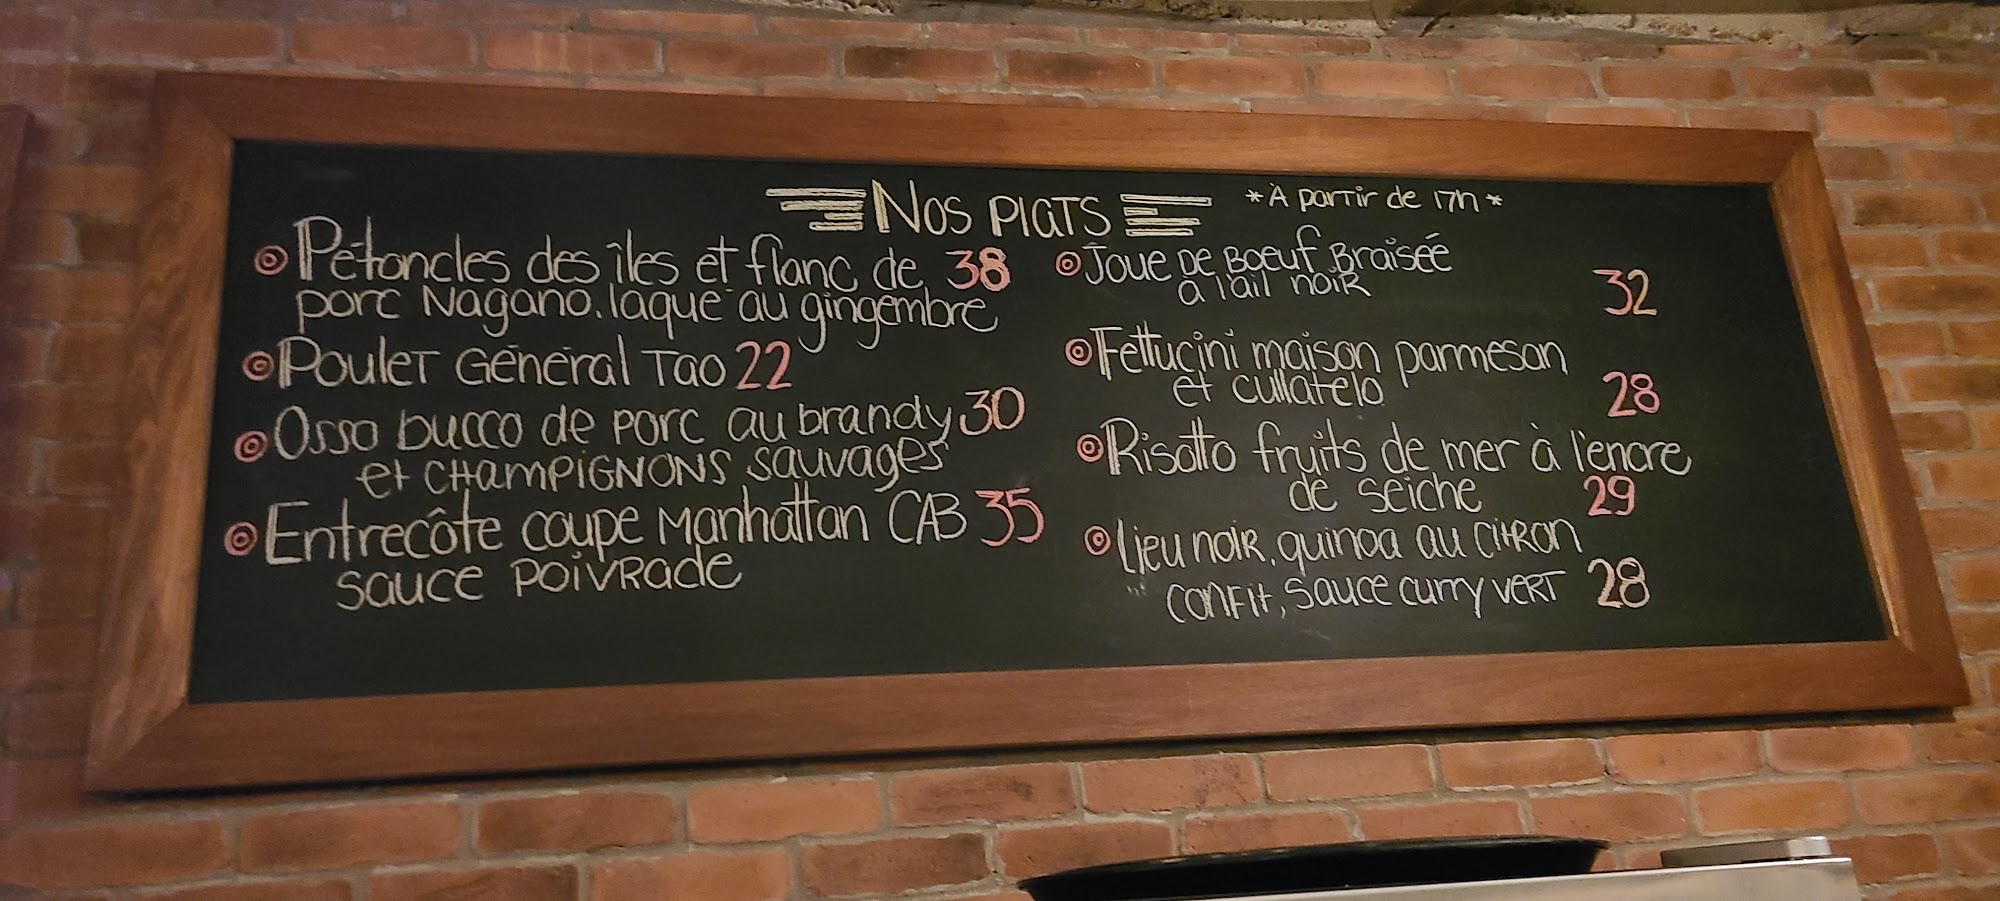 Nos plats
*À partir de 17h*
Pétoncles des îles et flanc de 38
porc Nagano, laqué au gingembre
Poulet Général Tao 22
Osso bucco de porc au brandy 30
et champignons sauvages
Entrecôte coupe Manhattan CAB 35
sauce poivrade
Joue de Boeuf Braisée
a l'ail noir 32
Fettucini maison parmesan
et cullatelo 28
Risotto fruits de mer à l'encre
de seiche 29
Lieu noir, quinoa au citron
confit, sauce curry vert 28